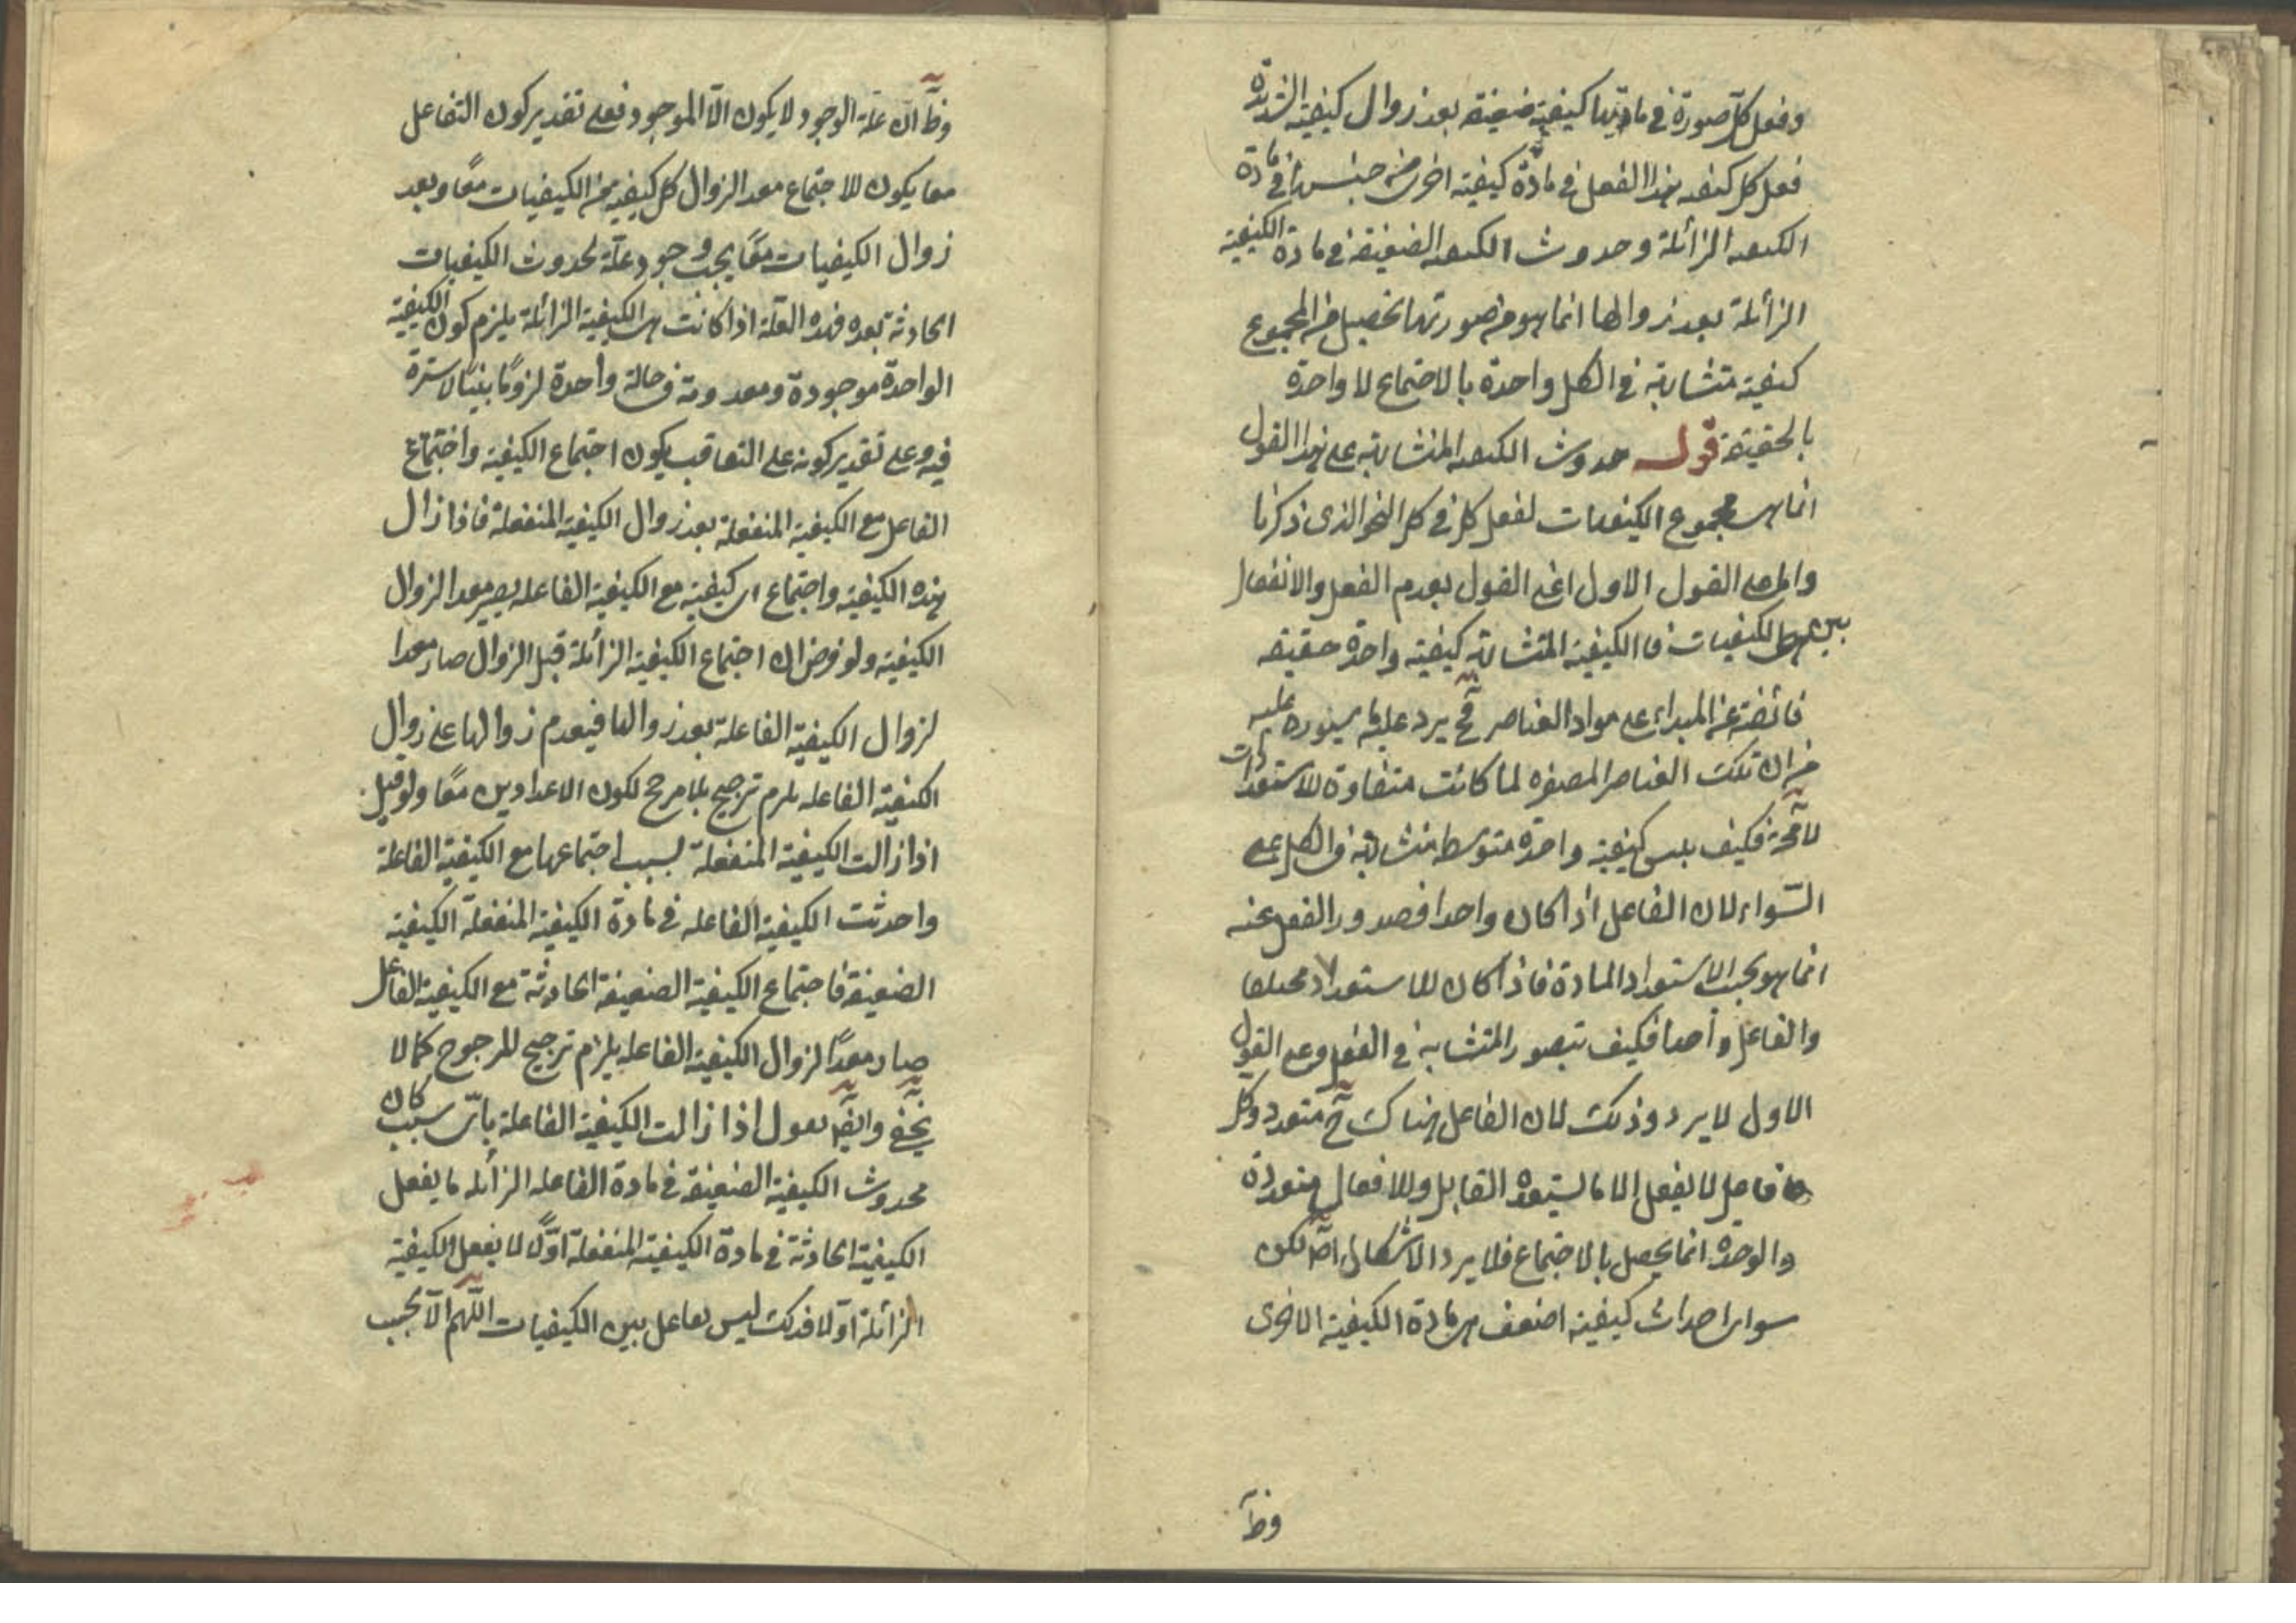 وفعل كل صورة في مادتها كيفية ضعيفة بعد زوال كيفية الشديدة
فعل كل كيفية بهذا الفعل في مادة كيفية اخرى من جنسها في مادة
الكيفية الزائلة وحدوث الكيفية الضعيفة في مادة الكيفية
الزائلة بعد زوالها انما هو من صورتها تحصيل من المجموع
كيفية متشابهة في الكل واحدة بالاجتماع لا واحدة
بالحقيقة قوله حدوث الكيفية المتشابهة على هذا القول
انما هي مجموع الكيفيات لفعل كل في كل النحو الذى ذكرنا
واما على القول الاول اعنى القول بعدم الفعل والانفعال
بين الكيفيات فالكيفية المتشابهة كيفية واحدة حقيقة
فائضة عن المبداء على مواد العناصر فح يرد عليه ما يوردونه عليه
من ان تلك العناصر المصغره لما كانت متفاوتة الاستعدادات
لامحة فكيف يلبس كيفية واحدة متوسطة متشابهة في الكل على
السواء لان الفاعل اذا كان واحدا فصدور الفعل عنه
انما هو بحسب الاستعداد المادة فاذا كان الاستعداد مختلفا
والفاعل واحدا فكيف يتصور المتشابه في الفعل وعلى القول
الاول لا يرد وذلك لان الفاعل هناك ح متعدد وكل
فاعل لا يفعل الا ما يستعده القابل والافعال متعددة
والوحدة انما يحصل بالاجتماع فلا يرد الاشكال اصلا لكن
سواء احداث كيفية اضعف في مادة الكيفية الاخرى
وظ
وظ ان علة الوجود لا يكون الا الموجود فعلى تقدير كون التفاعل
معا يكون الاجتماع معد الزوال كل كيفية من الكيفيات معا وبعد
زوال الكيفيات معا يجب وجود علة لحدوث الكيفيات
الحادثة بعده فهذه العلة اذا كانت هي الكيفية الزائلة يلزم كون الكيفية
الواحدة موجودة ومعدومة في حالة واحدة لزوما بينا لا سترة
فيه وعلى تقدير كونه على التعاقب يكون اجتماع الكيفية واجتماع
الفاعل مع الكيفية المنفعلة بعد زوال الكيفية المنفعلة فاذا زال
هذه الكيفية واجتماع اى كيفية مع الكيفية الفاعلة يصير معد الزوال
الكيفية ولو فرض ان اجتماع الكيفية الزائلة قبل الزوال صار معدا
لزوال الكيفية الفاعلة بعد زوالها فيعدم زوالها على زوال
الكيفية الفاعله يلزم ترجيح بلا مرجح لكون الاعدادين معا ولو قيل
اذا زالت الكيفية المنفعلة بسبب اجتماعها مع الكيفية الفاعلة
واحدثت الكيفية الفاعله في مادة الكيفية المنفعلة الكيفية
الضعيفة فاجتماع الكيفية الضعيفة الحادثة مع الكيفية الفاعل
صار معدا لزوال الكيفية الفاعله يلزم ترجيح للمرجوح كما لا
يخفى وايضا نقول اذا زالت الكيفية الفاعلة باى سبب كان
محدوث الكيفية الضعيفة في مادة الفاعله الزائله ما يفعل
الكيفية الحادثة في مادة الكيفية المنفعلة اولا لا يفعل الكيفية
الزائلة اولا فذلك ليس تفاعل بين الكيفيات اللهم الا بحسب